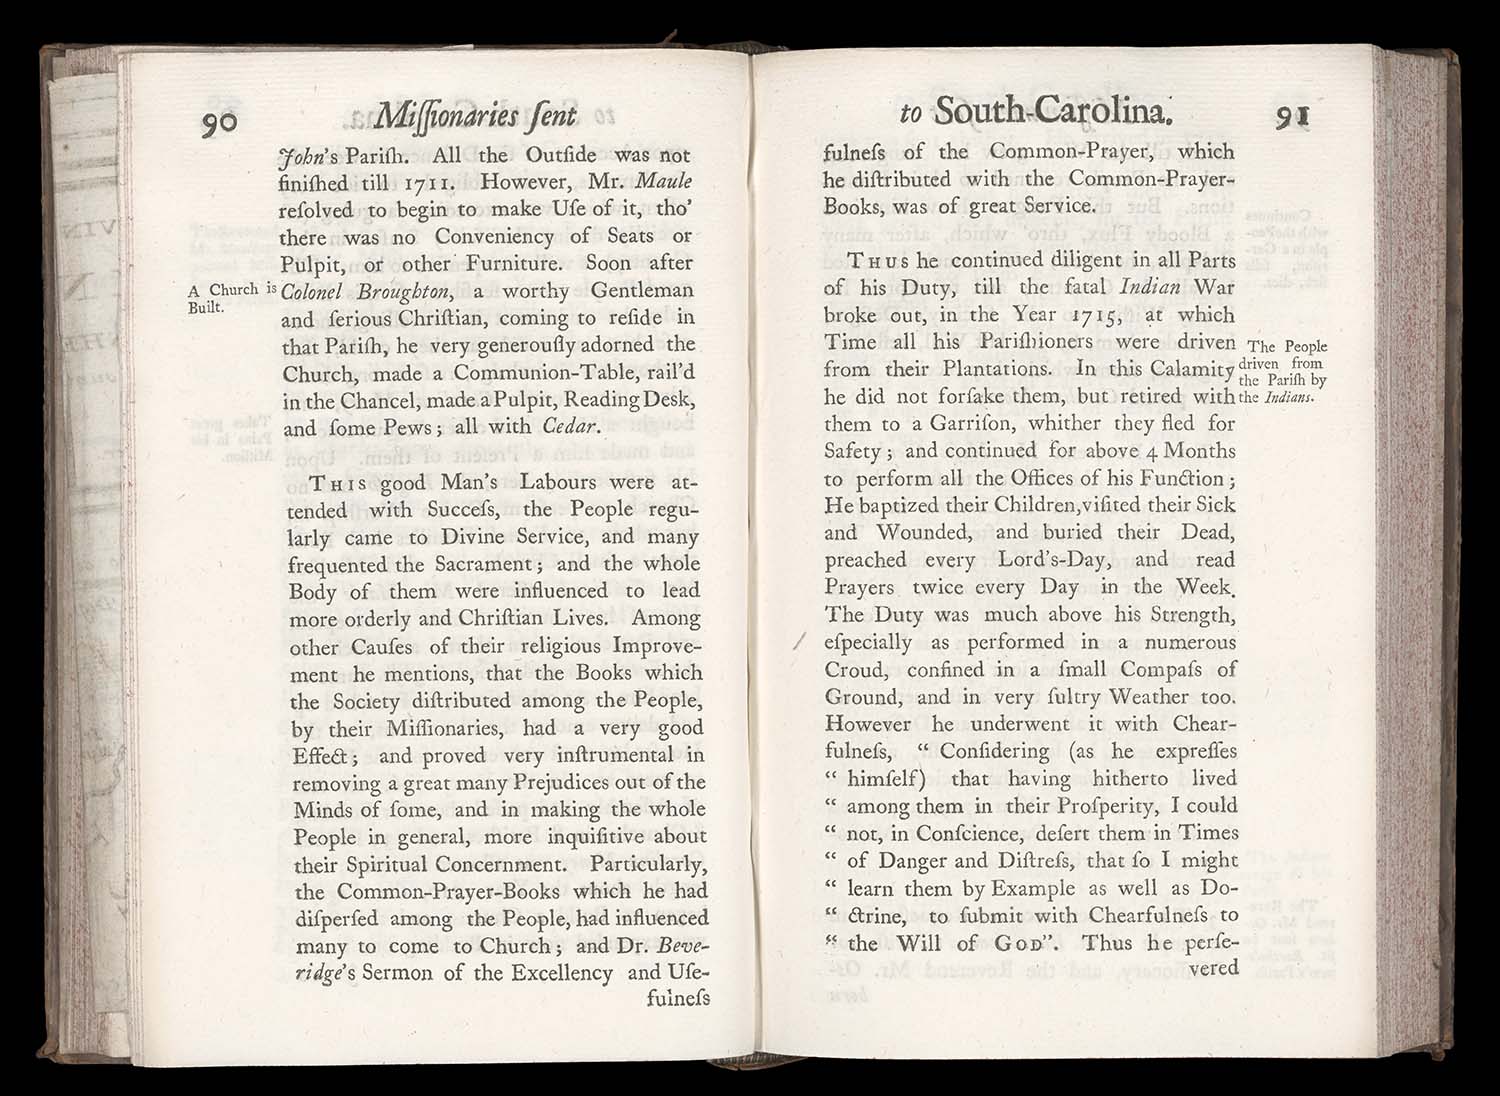 90
Miſſionaries ſent
John's Pariſh. All the Outſide was not
finiſhed till 1711. However, Mr. Maule
reſolved to begin to make Uſe of it, tho'
there was no Conveniency of Seats or
Pulpit, or other Furniture. Soon after
A Church is
Built.
Colonel Broughton, a worthy Gentleman
and ſerious Chriſtian, coming to reſide in
that Pariſh, he very generouſly adorned the
Church, made a Communion-Table, rail'd
in the Chancel, made a Pulpit, Reading Desk,
and ſome Pews; all with Cedar.
THIS good Man's Labours were at-
tended with Succeſs, the People regu-
larly came to Divine Service, and many
frequented the Sacrament; and the whole
Body of them were influenced to lead
more orderly and Chriſtian Lives. Among
other Cauſes of their religious Improve-
ment he mentions, that the Books which
the Society diſtributed among the People,
by their Miſſionaries, had a very good
Effect; and proved very inſtrumental in
removing a great many Prejudices out of the
Minds of ſome, and in making the whole
People in general, more inquiſitive about
their Spiritual Concernment. Particularly,
the Common-Prayer-Books which he had
diſperſed among the People, had influenced
many to come to Church; and Dr. Beve-
ridge's Sermon of the Excellency and Uſe-
fulneſs
to South-Carolina.
91
fulneſs of the Common-Prayer, which
he diſtributed with the Common-Prayer-
Books, was of great Service.
THUS he continued diligent in all Parts
of his Duty, till the fatal Indian War
broke out, in the Year 1715, at which
Time all his Pariſhioners were driven
from their Plantations. In this Calamity
he did not forſake them, but retired with
The People
driven from
the Pariſh by
the Indians.
them to a Garriſon, whither they fled for
Safety; and continued for above 4 Months
to perform all the Offices of his Function;
He baptized their Children, viſited their Sick
and Wounded, and buried their Dead,
preached every Lord's-Day, and read
Prayers twice every Day in the Week.
The Duty was much above his Strength,
eſpecially as performed in a numerous
Croud, confined in a ſmall Compaſs of
Ground, and in very ſultry Weather too.
However he underwent it with Chear-
fulneſs, “ Conſidering (as he expreſſes
“ himſelf) that having hitherto lived
“ among them in their Proſperity, I could
“ not, in Conſcience, deſert them in Times
“ of Danger and Diſtreſs, that ſo I might
“ learn them by Example as well as Do-
“ ctrine, to ſubmit with Chearfulneſs to
“ the Will of GOD”. Thus he perſe-
vered